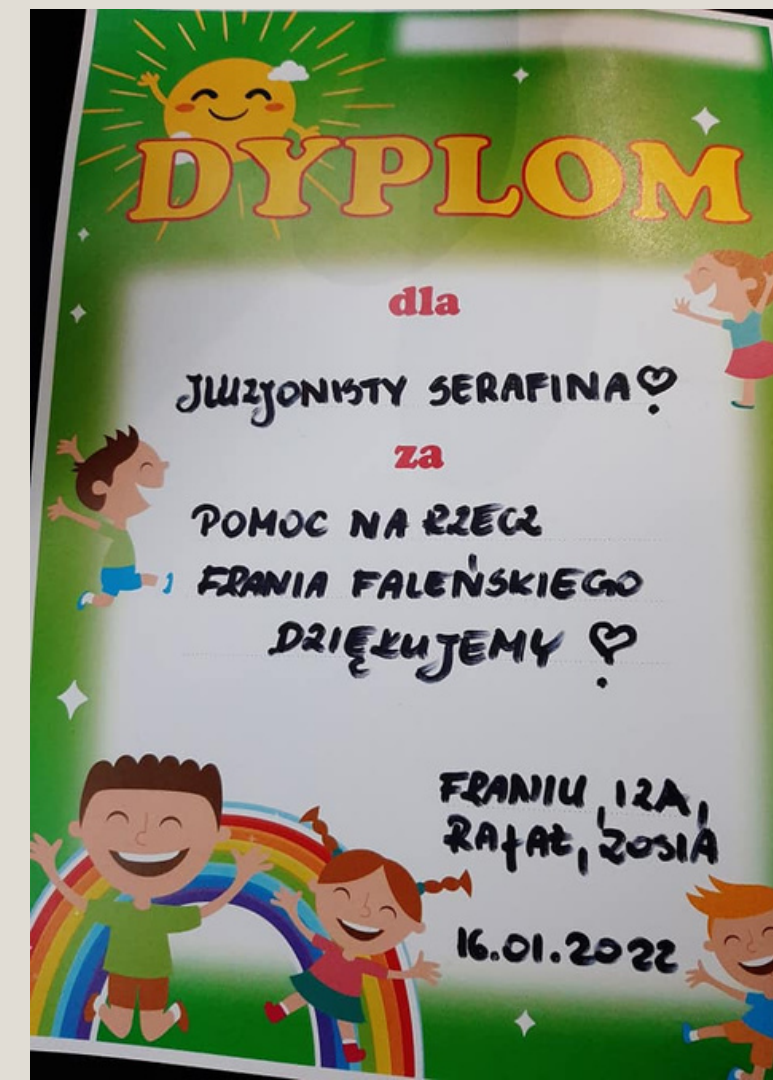 DYPLOM
dla
JLUZJONISTY SERAFINA
za
POMOC NA RZECZ
FRANIA FALEŃSKIEGO
DZIĘKUJEMY
FRANIU, IZA,
RAFAŁ, ZOSIA
16.01.2022